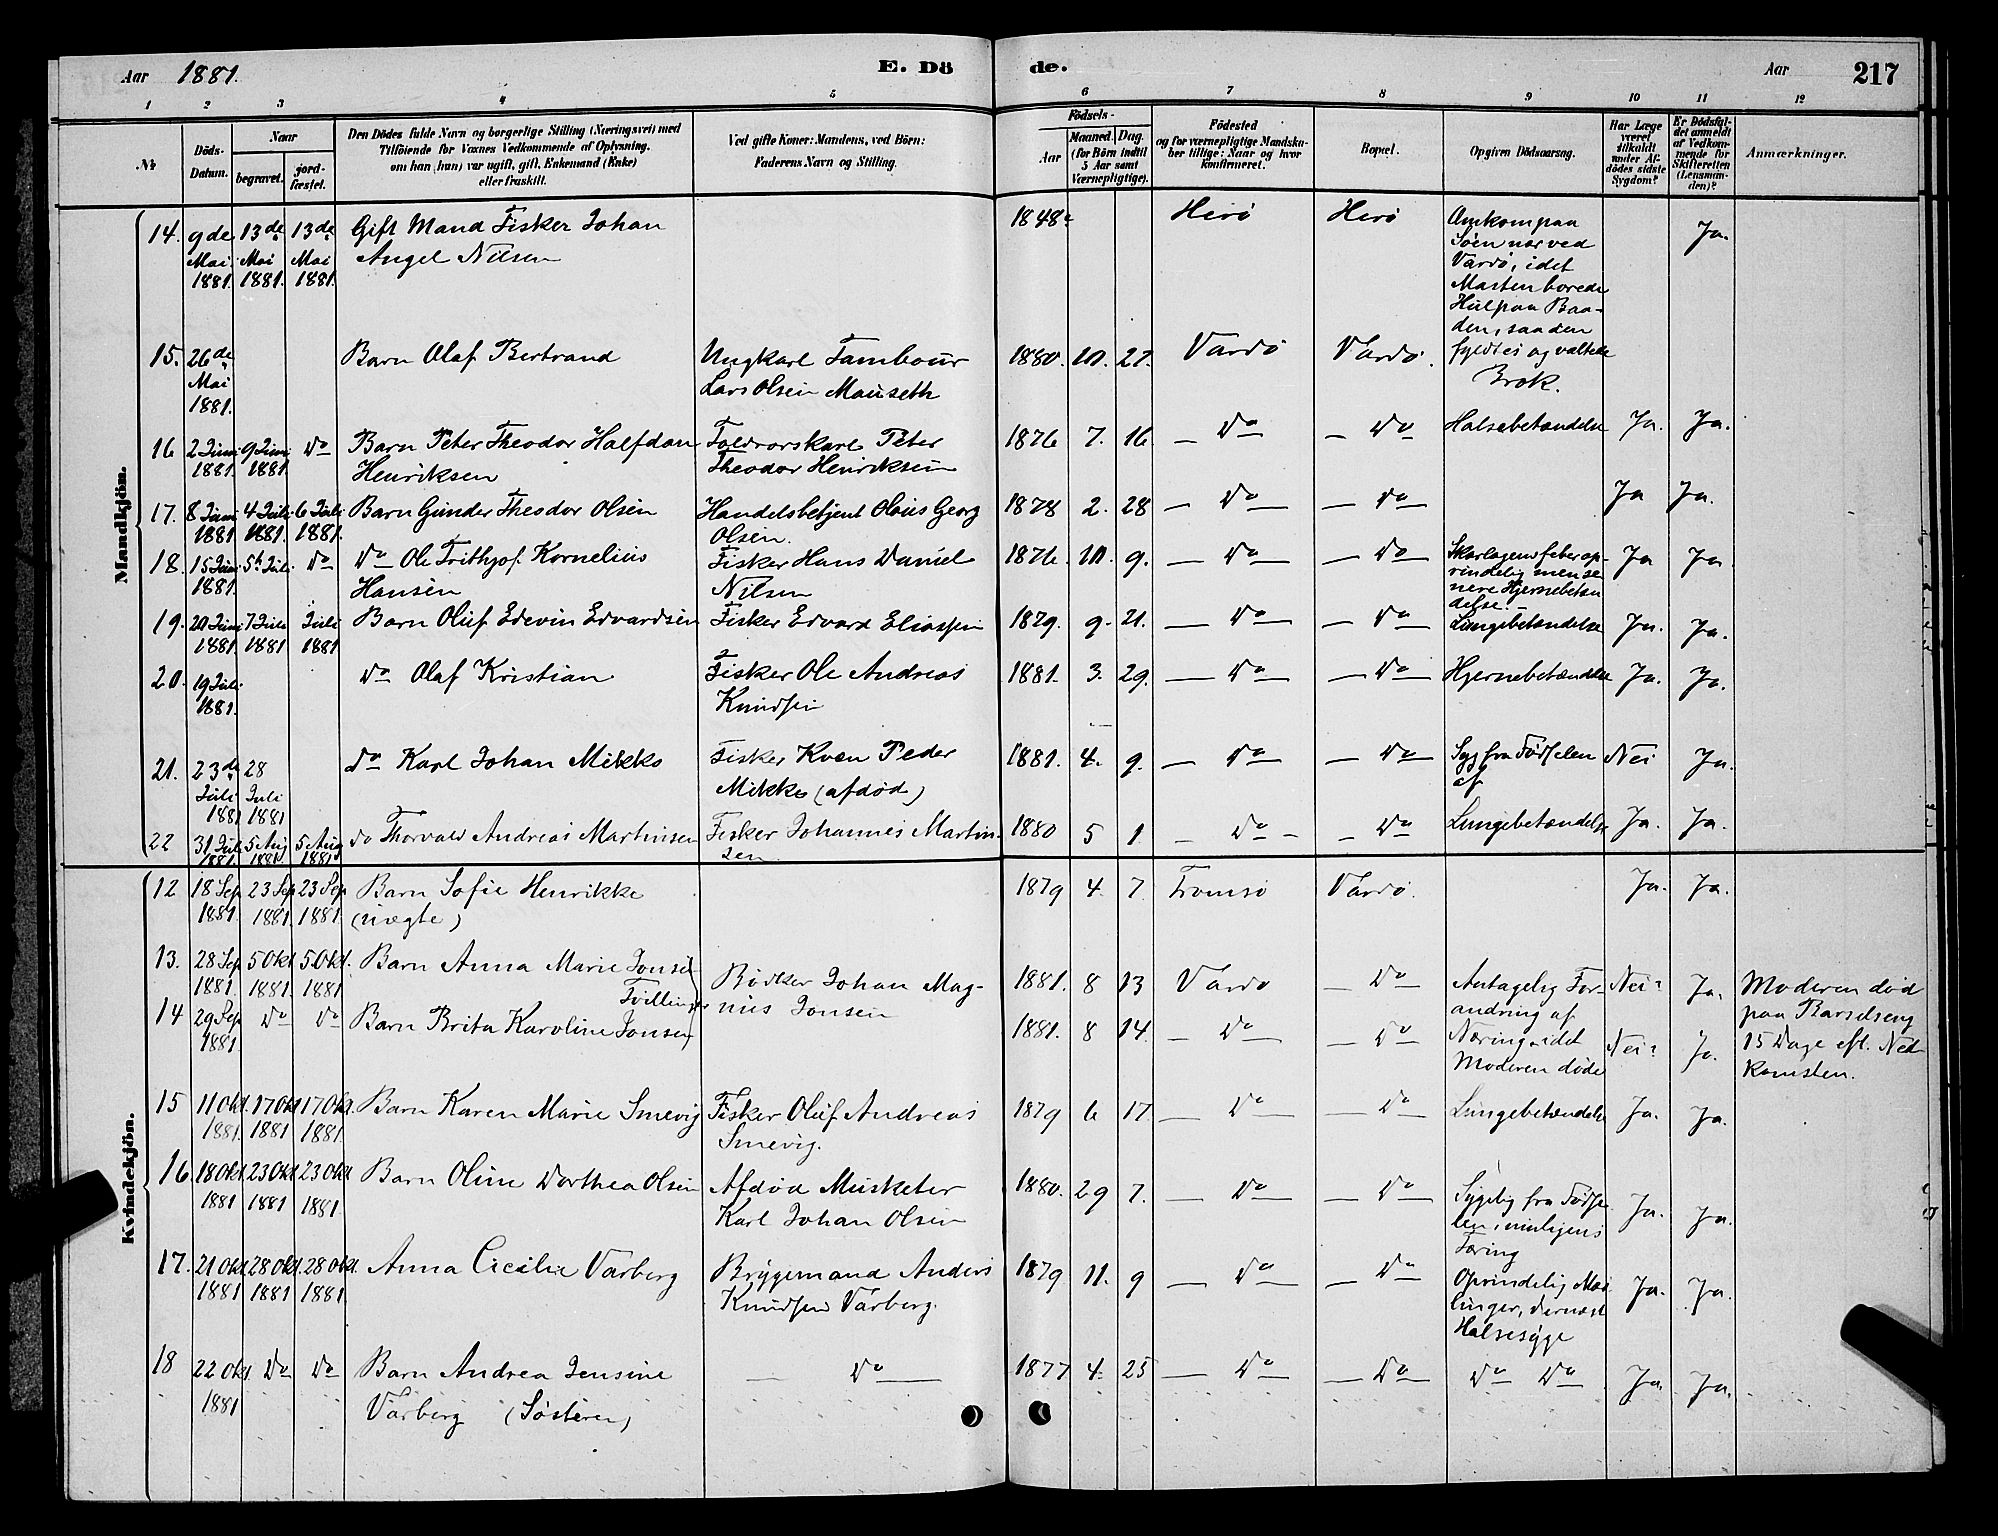 Aar 1881. E. Dö de. Aar 217
1 2 3 4 5 6 7 8 9 10 11 12
№
Döds-Datum.
Naar
begravet.
jord-fæstet.
Den Dödes fulde Navn og borgerlige Stilling (Næringsvei) med
Tilföiende for Voxnes Vedkommende af Oplysning,
om han (hun) var ugift, gift, Enkemand (Enke)
eller fraskilt.
Ved gifte Koner: Mandens, ved Börn:
Faderens Navn og Stilling.
Födsels-
Aar
Maaned. Dag.
(for Börn indtil
5 Aar samt
Værnepligtige).
Födested
og for værnepligtige Mandska-
ber tillige: Naar og hvor
konfirmeret.
Bopæl.
Opgiven Dödsaarsag.
Har Læge
været
tilkaldt
under Af-
dödes sidste
Sygdom?
Er Dödsfal-
det anmeldt
af Vedkom-
mende for
Skifteretten
(Lensman-
den)?
Anmærkninger.
Mandkjön.
14. 9de Mai 1881. 13de Mai 1881. 13de Mai 1881. Gift Mand Fisker Johan
Angel Nilsen
1848. Herö Herö
Omkom paa
Söen nær ved
Vardö, idet
Masten borede
Hul paa Baa-
den, saa den
fyldtes og væltede
Ja.
15. 26de Mai 1881. Barn Olaf Bertrand
Ungkarl Tambour
Lars Olsen Mauseth
1880. 10. 27. Vardö Vardö. Brok.
16 2 Juni 1881. 9 Juni 1881. Do Barn Peter Theodor Halfdan
Henriksen
Toldrorskarl Peter
Theodor Henriksen
1876 7. 16 — Do — Do Halsebetændelse Ja. Ja.
17. 8 Juni 1881 4 Juli 1881. 6 Juli 1881. Barn Gunder Theodor Olsen
Handelsbetjent Olaus Georg
Olsen.
1878 2. 28 — Do — — Do — Ja Ja.
18. 15 Juni 1881. 5te Juli Do Do Ole Frithjof Kornelius
Hansen
Fisker Hans Daniel
Nilsen
1876. 10. 9. — Do — — Do
Skarlagensfeber op-
rindelig men se-
nere Hjernebetæn
delse.
Ja Ja.
19. 20 Juni 1881. 7 Juli 1881 Juli 1881. Barn Oluf Edevin Edvardsen
Fisker Edvard Eliassen
1879. 9. 21. — Do — — Do Lungebetændelse Ja. Ja.
20. 19 Juli 1881. Do Olaf Kristian
Fisker Ole Andreas
Knudsen
1881. 3. 29. — Do — — Do — Hjernebetændelse Ja. Ja.
21. 23de Juli 1881 28 Juli 1881 Do Karl Johan Mikko
Fisker Kvæn Peder
Mikko (afdød)
1881. 4. 9. — Do — — Do — Syg fra Födselen
af
Nei Ja.
22 31 Juli 1881. 5 Aug 1881 5 Aug 1881 do Thorvald Andreas Martinsen
Fisker Johannes Martin-
sen
1880 5 1 — Do — — Do Lungebetændelse Ja. Ja.
Kvindekjön.
12 18 Sep 1881. 23 Sep 1881. 23 Sep 1881. Barn Sofie Henrikke
(uægte)
1879 4. 7. Tromsö Vardö. Ja. Ja.
13. 28 Sep 1881. 5 Okt 1881. 5 Okt. 1881 Barn Anna Marie Jonsen
Tvillinger
Bödker Johan Mag-
nus Jonsen
1881. 8 13 Vardö — Do
Antagelig For-
andring af
Næring, idet
Moderen döde
Nei? Ja.
Moderen död
paa Barselseng
15 Dage eft. Ned-
komsten.
14 29 Sep 1881. Do Do Barn Brita Karoline Jonsen
1881. 8 14. — Do — — Do Nei? Ja.
15 11 Okt. 1881. 17 Okt. 1881 17 Okt. 1881. Barn Karen Marie Smevig
Fisker Oluf Andreas
Smevig.
1879 6 17. — Do — — Do Lungebetændelse Ja. Ja.
16. 18 Okt 1881 23 Okt 1881 23 Okt 1881. Barn Oline Dorthea Olsen
Afdød Musketer
Karl Johan Olsen
1880. 29 7. — Do — — Do
Sygelig fra Födse
len,
Tæring
Ja. Ja.
17. 21 Okt 1881 28 Okt. 1881 28 Okt. 1881. Anna Cicilie Varberg
Bryggemand Anders
Knudsen Varberg.
1879 11. 9 — Do — — Do
Oprindelig Mæs
linger, dernæst
Halsesyge
Ja. Ja.
18 22 Okt. 1881 Do Do Barn Andrea Jensine
Varberg (Söstere)
— Do —
1877 4. 25 — Do — — Do — Do Do Ja. Ja.